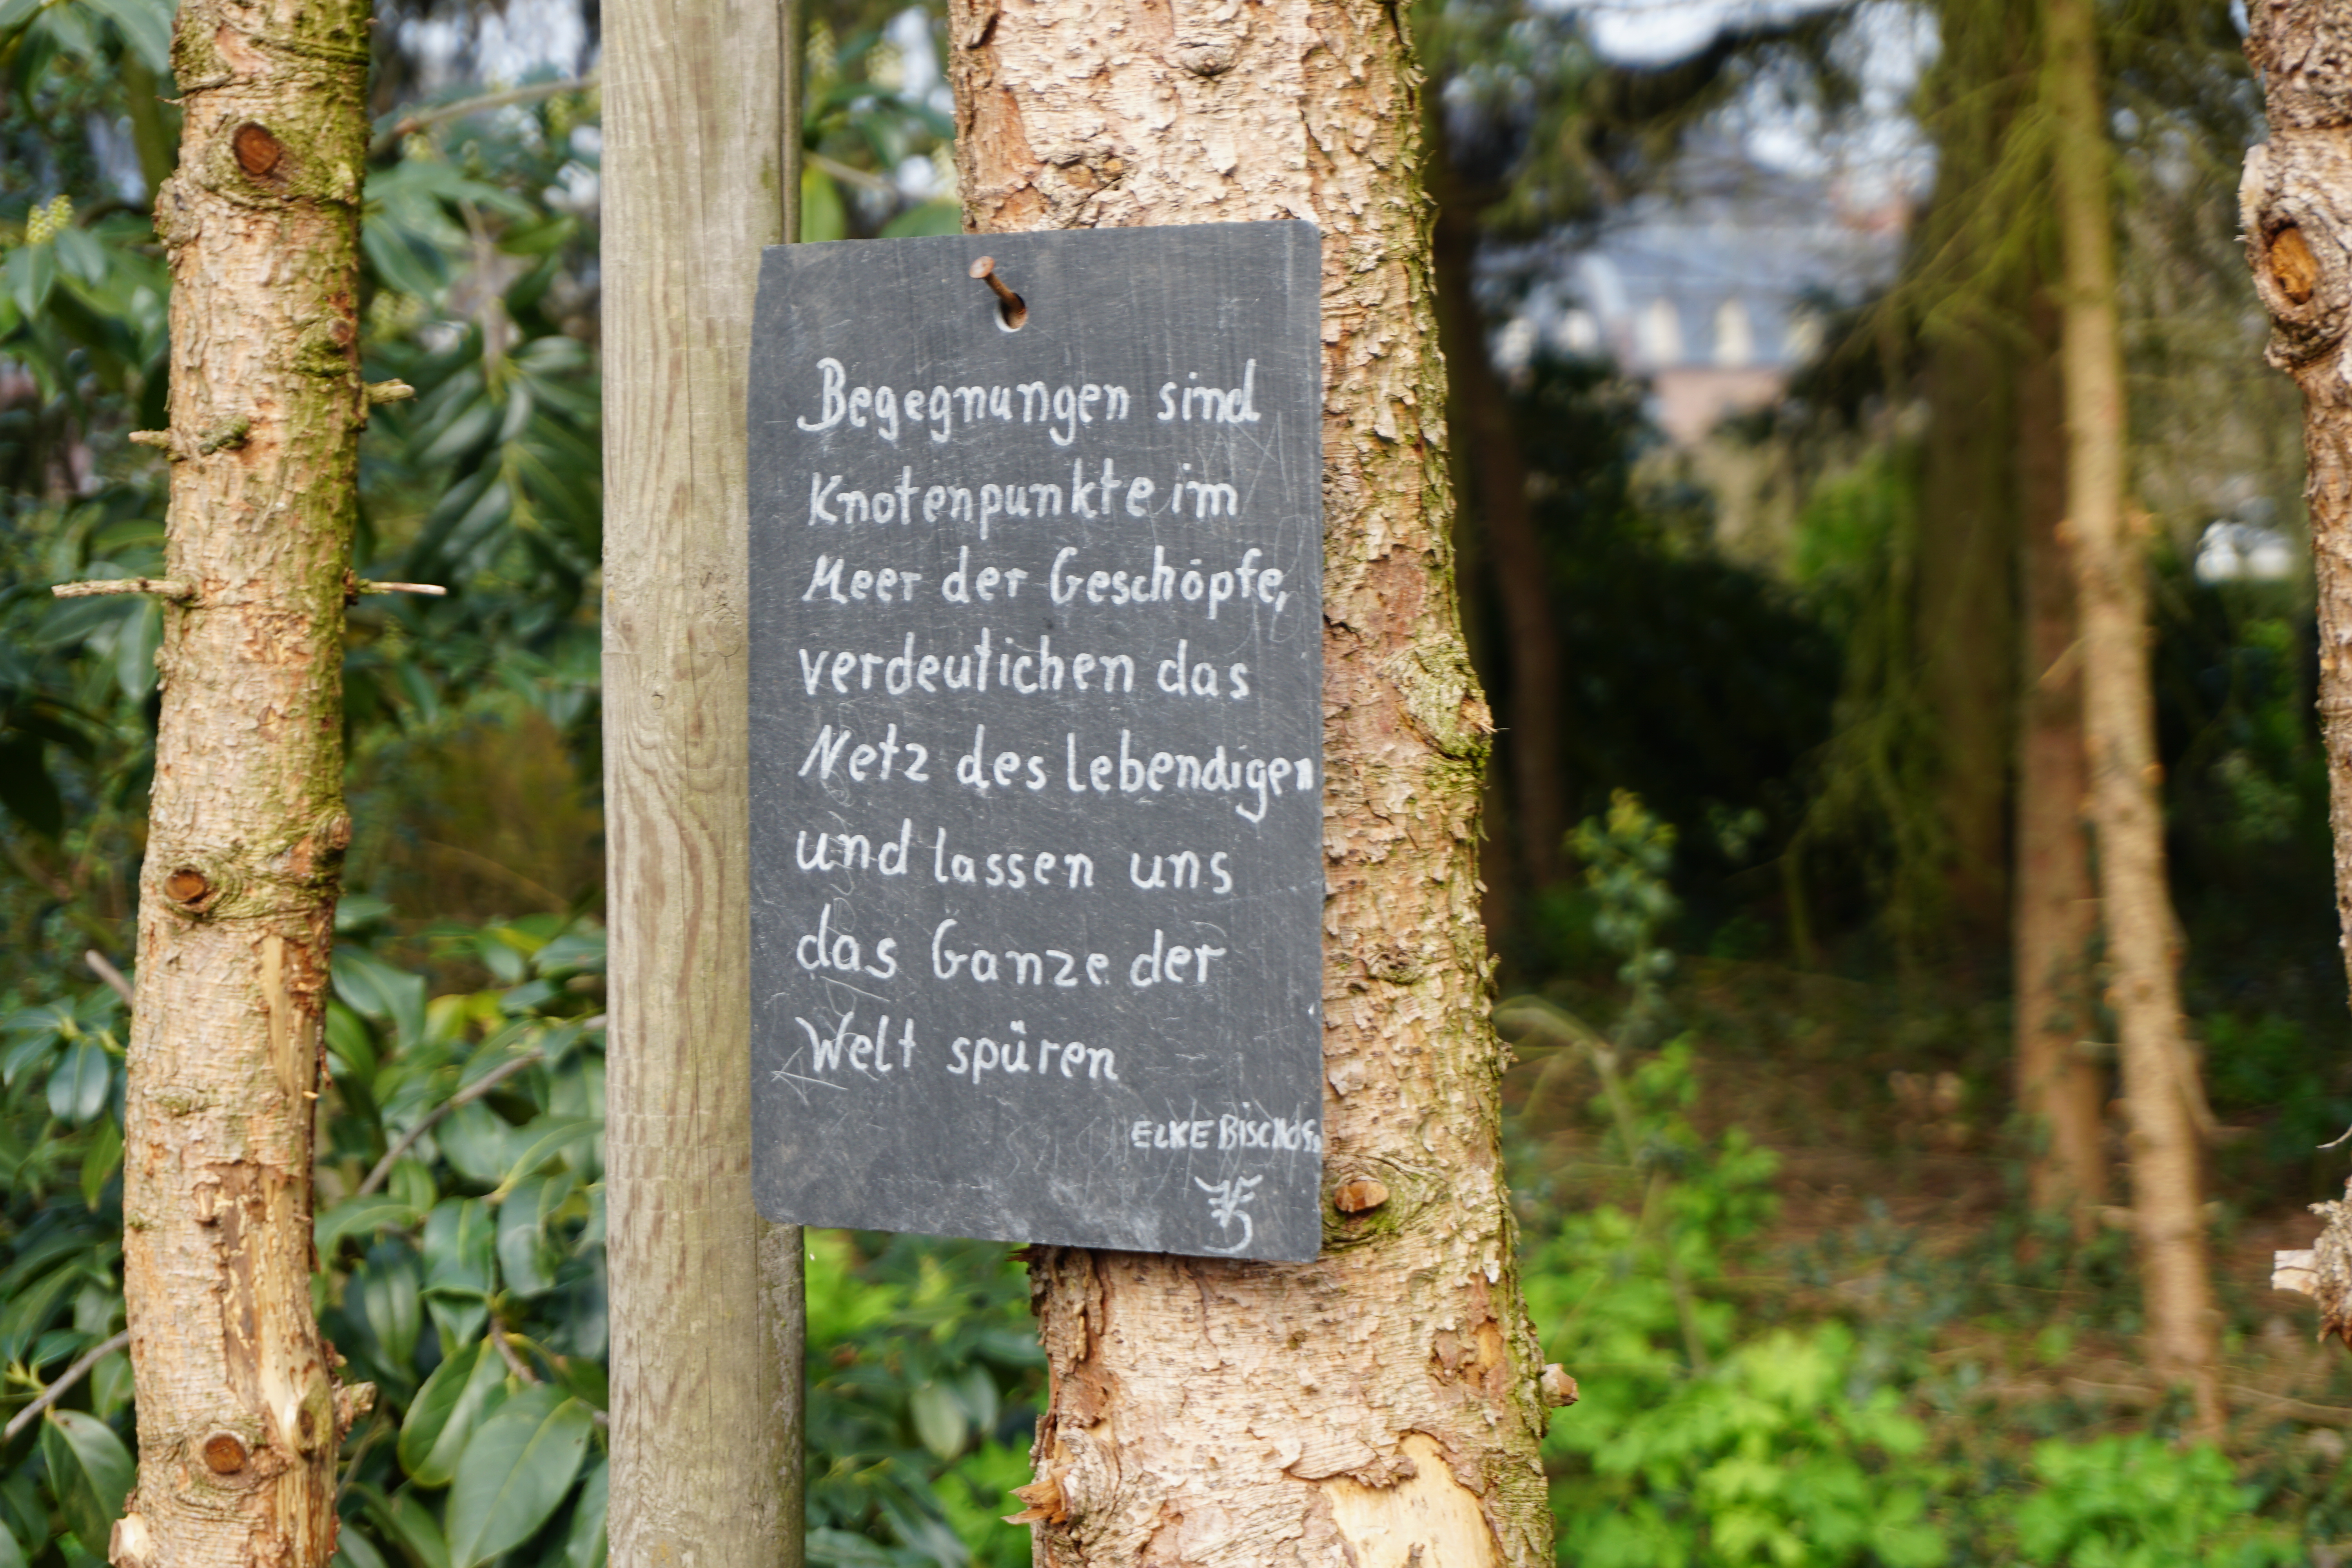 Begegnungen sind
Knotenpunkte im
Meer der Geschöpfe,
verdeutlichen das
Netz des lebendigen
und lassen uns
das Ganze der
Welt spüren
ELKE